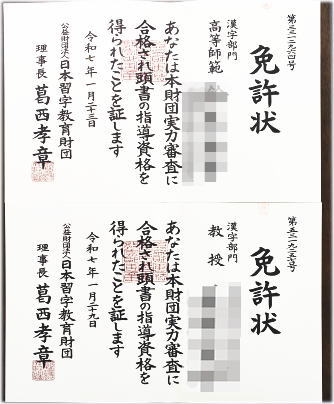 免許状
漢字部門
高等師範
あなたは本財団実力審査に
合格され頭書の指導資格を
得られたことを証します
令和七年一月二十三日
公益財団法人日本習字教育財団
理事長 葛西孝章
免許状
漢字部門
教授
あなたは本財団実力審査に
合格され頭書の指導資格を
得られたことを証します
令和七年一月二十九日
公益財団法人日本習字教育財団
理事長 葛西孝章